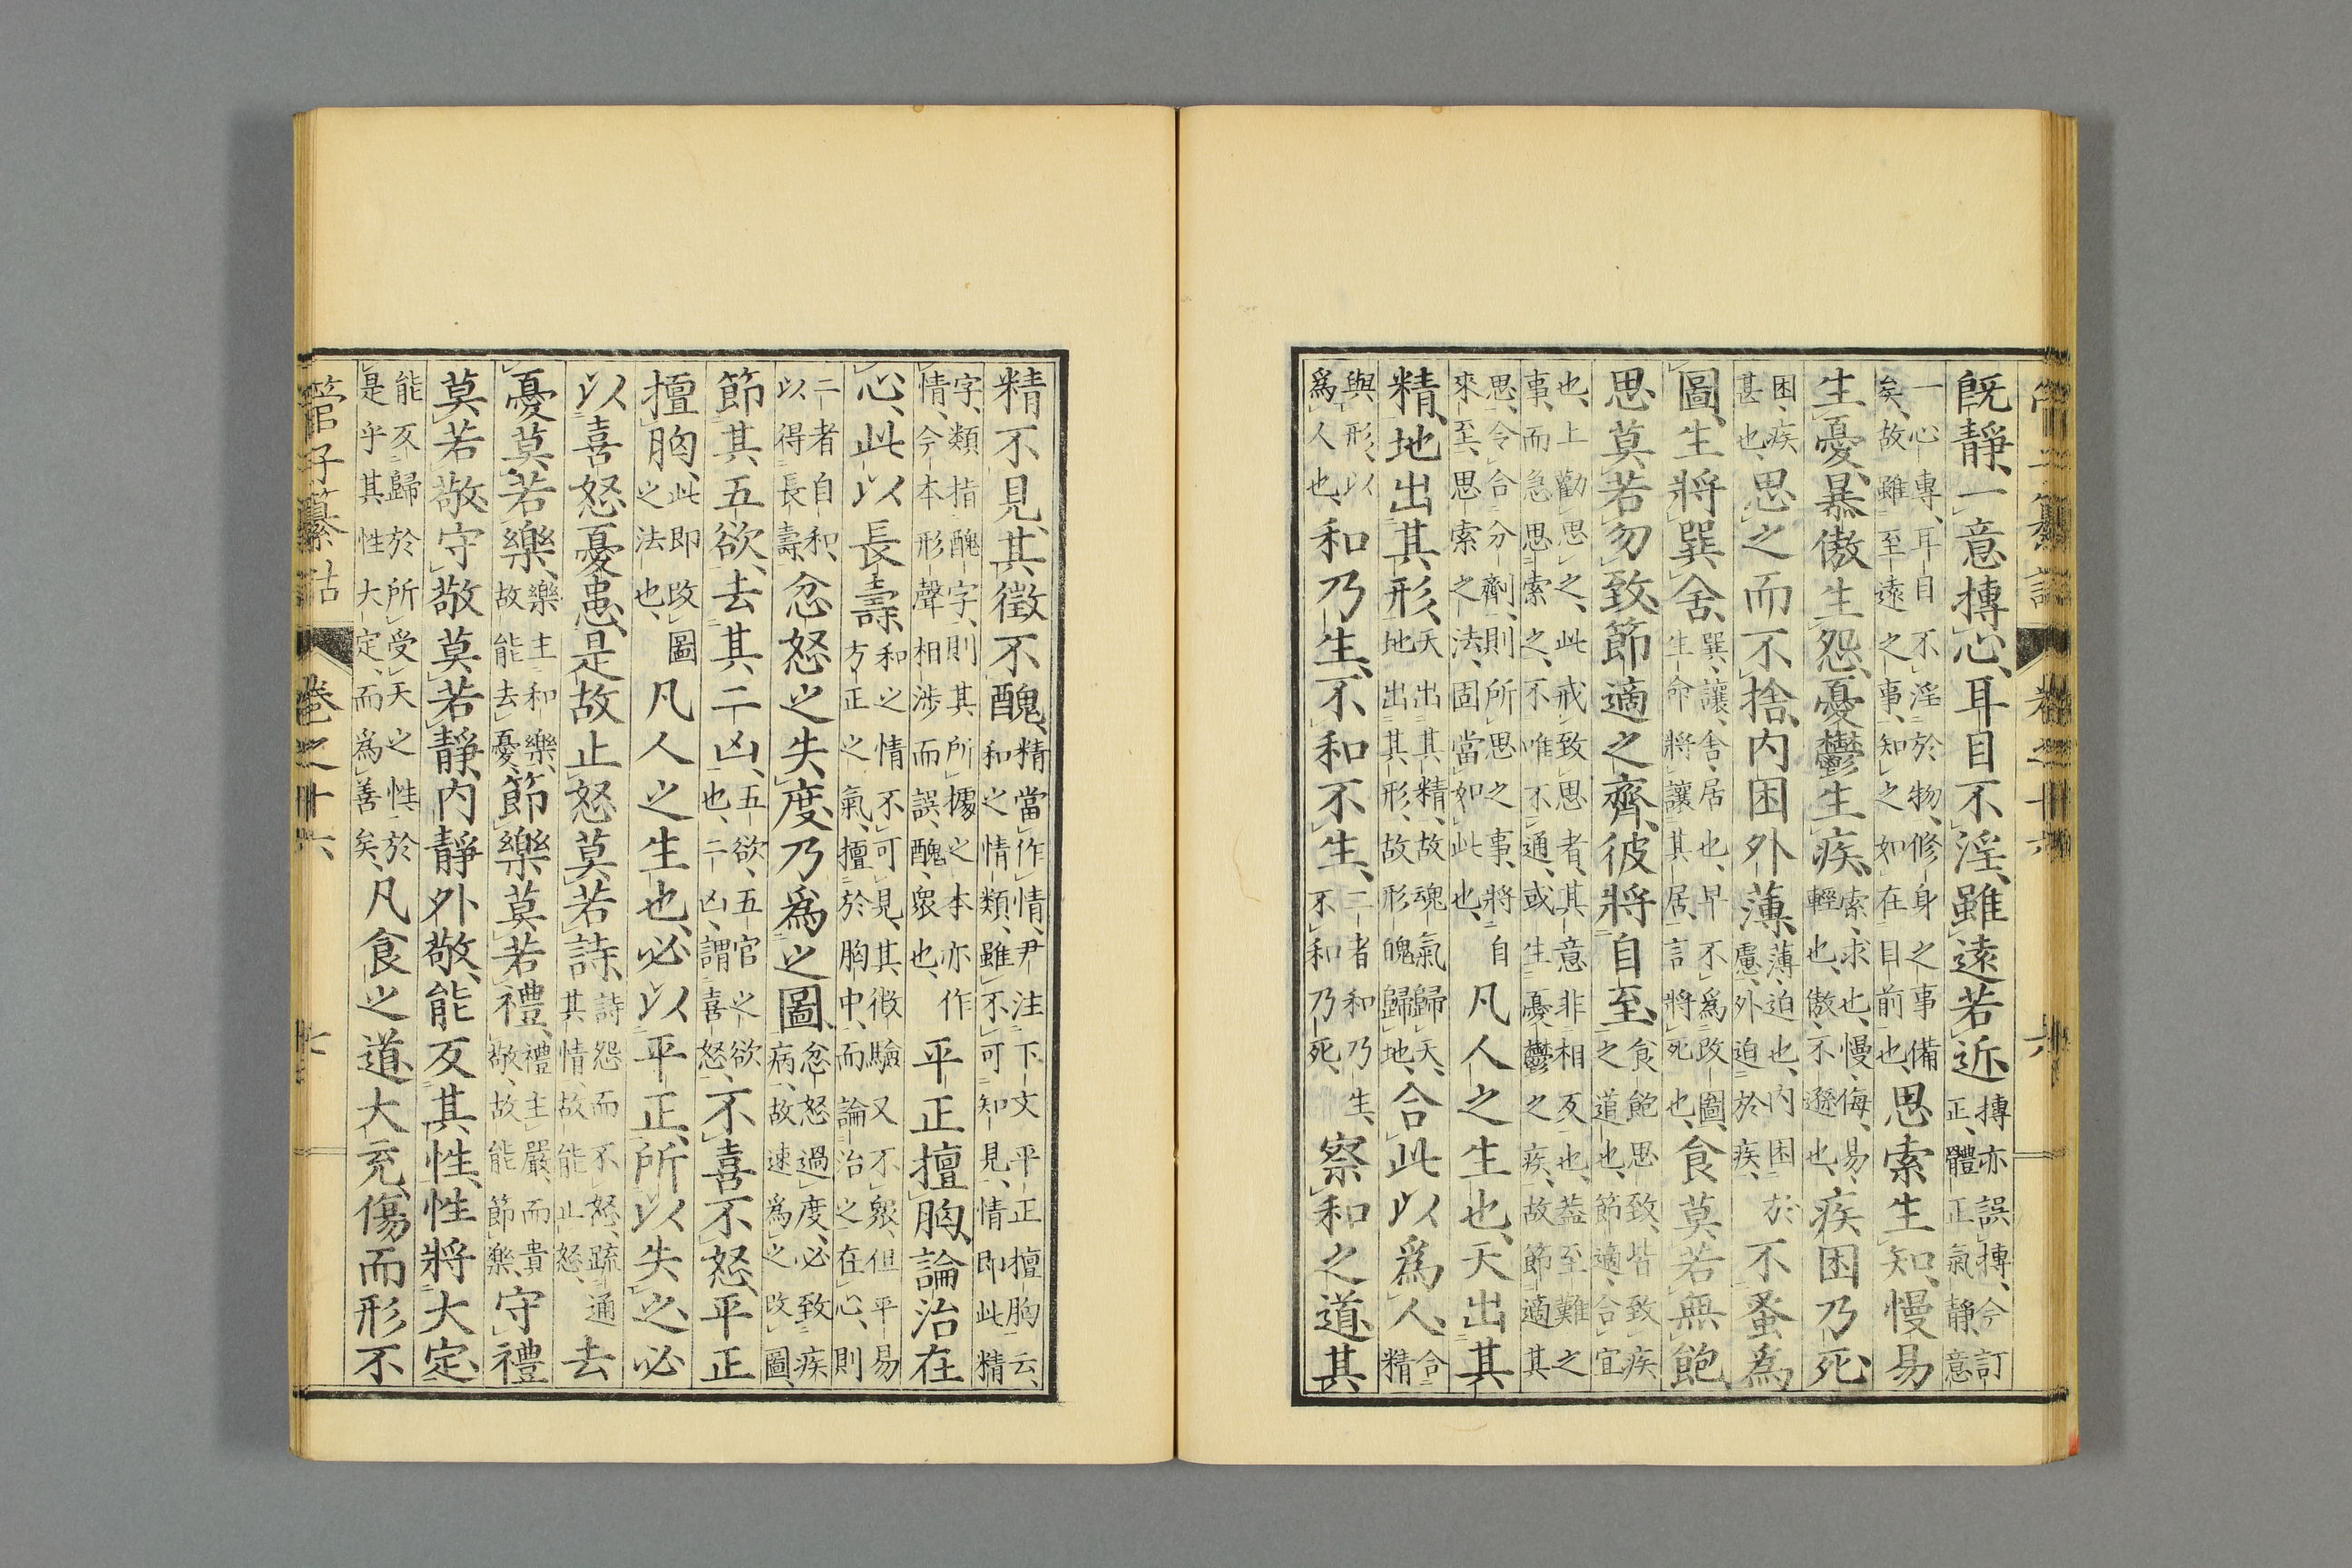 管子纂詁 卷之十六 六
既靜、一意摶心、耳目不淫、雖遠若近、摶亦誤搏、今訂正、體正氣靜、意
一心專、耳目不淫於物、修身之事備矣、故雖至遠之事、知之如在目前也、思索生知、慢易
生憂、暴傲生怨、憂鬱生疾、索、求也、慢、侮、易、輕也、傲、不遜也、疾困乃死、
困、疾甚也、思之而不捨、内困外薄、薄、迫也、内困於慮、外迫於疾、不蚤爲
圖、生將巽舍、巽、讓、舍、居也、早不爲改圖、生命將讓其居、言將死也、食莫若無飽、
思莫若勿致、節適之齊、彼將自至、食飽思致、皆致疾之道也、節適、合宜
也、上勸思之、此戒致思者、其意非相反也、蓋至難之事、而急思索之、不唯不通、或生憂鬱之疾、故節適其
思、令合分劑、則所思之事、將自來至、思索之法、固當如此也、凡人之生也、天出其
精、地出其形、天出其精、故魂氣歸天、地出其形、故形魄歸地、合此以爲人、合精
與形、以爲人也、和乃生、不和不生、二者和乃生、不和乃死、察和之道、其
精不見、其徴不醜、精當作情、尹注下文平正擅胸云、和之情類、雖不可知見、情即此精
字、類指醜字、則其所據之本亦作情、今本形聲相涉而誤、醜、衆也、平正擅胸、論治在
心、此以長壽、和之情不可見、其徴驗又不衆、但平易方正之氣、擅於胸中、而論治之在心、則
二者自和、以得長壽、忿怒之失度、乃爲之圖、忿怒過度、必致疾病、故速爲之改圖、
節其五欲、去其二凶、五欲、五官之欲也、二凶、謂喜怒、不喜不怒、平正
擅胸、此即改圖之法也、凡人之生也、必以平正、所以失之、必
以喜怒憂患、是故止怒莫若詩、詩怨而不怒、疏通其情、故能止怒、去
憂莫若樂、樂主和樂、故能去憂、節樂莫若禮、禮主嚴而貴敬、故能節樂、守禮
莫若敬、守敬莫若靜、内靜外敬、能反其性、性將大定、
能反歸於所受天之性、於是乎其性大定、而爲善矣、凡食之道、大充、傷而形不
管子纂詁 卷之十六 七